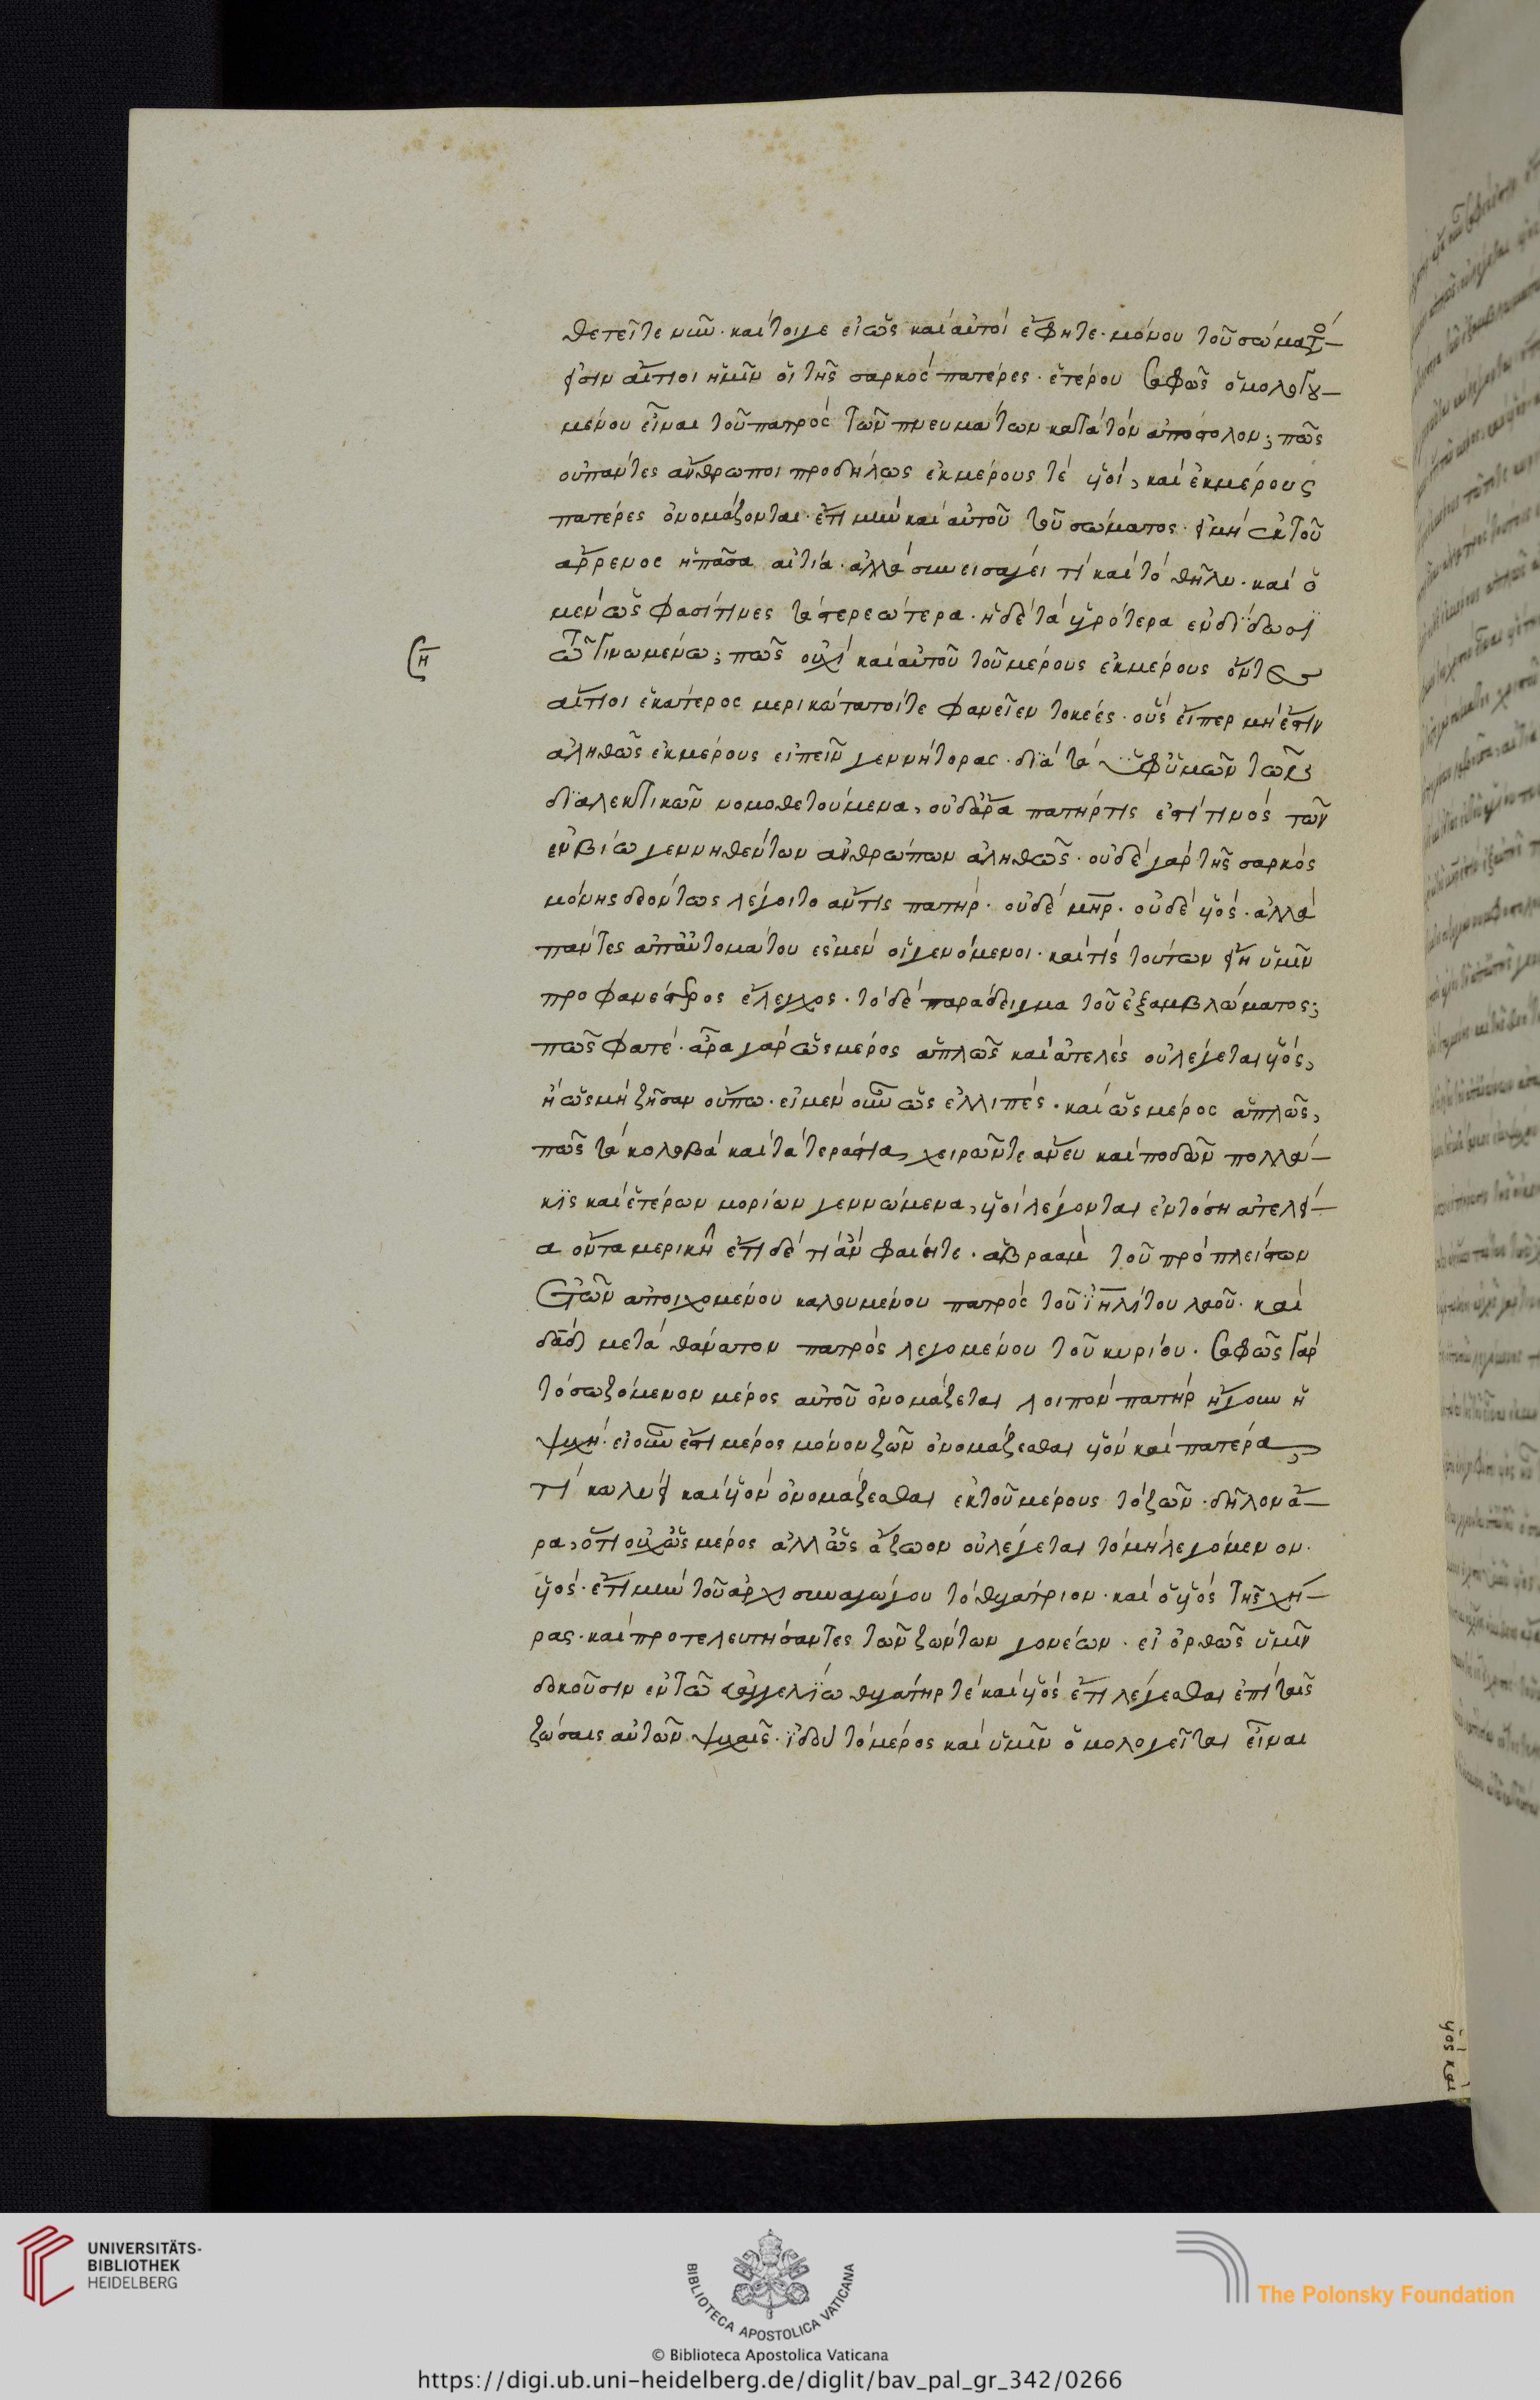 θετεῖτε νῦν. καίτοιγε εἰ ὡς καὶ αὐτοὶ ἔφητε. μόνου τοῦ σώματός
εἰσιν αἴτιοι ἡμῖν οἱ τῆς σαρκὸς πατέρες. ἑτέρου σαφῶς ὁμολογου–
μένου εἶναι τοῦ πατρὸς τῶν πνευμάτων κατὰ τὸν ἀπόστολον; πῶς
οὐ πάντες ἄνθρωποι προδήλως ἐκ μέρους τὲ υἱοὶ, καὶ ἐκ μέρους
πατέρες ὀνομάζονται. ἔτι μὴν καὶ αὐτοῦ τοῦ σώματος. εἰ μὴ ἐκ τοῦ
ἄρρενος ἡ πᾶσα αἰτία. ἀλλὰ συνεισάγει τί καὶ τὸ θῆλυ. καὶ ὁ
μὲν ὥς φασί τινες τὰ στερεώτερα. ἡ δὲ τὰ ὑγρότερα ἐνδίδωσι
τῶ γινωμένω; πῶς οὐχὶ καὶ αὐτοῦ τοῦ μέρους ἐκ μέρους ὄντες
αἴτιοι ἑκάτερος μερικώτατοί τε φανεῖεν τοκέες. οὓς εἴπερ μὴ ἔστιν
ἀληθῶς ἐκ μέρους εἰπεῖν γεννήτορας. διὰ τὰ ὑφ' ὑμῶν τῶν
διαλεκτικῶν νομοθετούμενα, οὐδ' ἄρα πατήρ τις ἐστί τινὸς τῶν
ἐν βίω γεννηθέντων ἀνθρώπων ἀληθῶς. οὐδὲ γὰρ τῆς σαρκὸς
μόνης δεόντως λέγοιτο ἄν τις πατὴρ. οὐδὲ μηρ. οὐδὲ υἱὸς. ἀλλὰ
πάντες ἀπ' αὐτομάτου ἐσμὲν οἱ γενόμενοι. καὶ τίς τούτων εἴη ὑμῖν
προφανέστερος ἔλεγχος. τὸ δὲ παράδειγμα τοῦ ἐξαμβλώματος;
πῶς φατέ. ἆρα γὰρ ὡς μέρος ἁπλῶς καὶ ἀτελὲς οὐ λέγεται υἱὸς,
ἢ ὡς μὴ ζῆσαν οὔπω. εἰ μὲν οὖν ὡς ἐλλιπὲς. καὶ ὡς μέρος ἁπλῶς,
πῶς τὰ κολοβὰ καὶ τὰ τεράστια, χειρῶν τε ἄνευ καὶ ποδῶν πολλά–
κις καὶ ἑτέρων μορίων γεννώμενα, υἱοὶ λέγονται ἐν τόση ἀτελεί–
α ὄντα μερικῆ ἔτι δὲ τί ἂν φαίητε. ἀβραὰμ τοῦ πρὸ πλείστων
ἐτῶν ἀποιχομένου καλουμένου πατρὸς τοῦ ἰηλίτου λαοῦ. καὶ
δᾱδ μετὰ θάνατον πατρὸς λεγομένου τοῦ κυρίου. σαφῶς γὰρ
τὸ σωζόμενον μέρος αὐτοῦ ὀνομάζεται λοιπὸν πατὴρ ἤγουν ἡ
ψυχή. εἰ οὖν ἔστι μέρος μόνον ζῶν ὀνομάζεσθαι υἱὸν καὶ πατέρα,
τί κωλύει καὶ υἱὸν ὀνομάζεσθαι ἐκ τοῦ μέρους τὸ ζῶν. δῆλον ἄ–
ρα, ὅτι οὐχ ὡς μέρος ἀλλ' ὡς ἄζωον οὐ λέγεται τὸ μὴ λεγόμενον.
υἱός. ἔτι μὴν τοῦ ἀρχισυναγώγου τὸ θυγάτριον. καὶ ὁ υἱὸς τῆς χή–
ρας. καὶ προτελευτήσαντες τῶν ζώντων γονέων. εἰ ὀρθῶς ὑμῖν
δοκοῦσιν ἐν τῶ εὐαγγελίω θυγάτηρ τὲ καὶ υἱὸς ἔτι λέγεσθαι ἐπὶ ταῖς
ζώσαις αὐτῶν ψυχαῖς. ἰδοὺ τὸ μέρος καὶ ὑμῖν ὁμολογεῖται εἶναι
υἱὸς καὶ
UNIVERSITÄTS-
BIBLIOTHEK
HEIDELBERG
BIBLIOTECA APOSTOLICA VATICANA
The Polonsky Foundation
© Biblioteca Apostolica Vaticana
https://digi.ub.uni-heidelberg.de/diglit/bav_pal_gr_342/0266